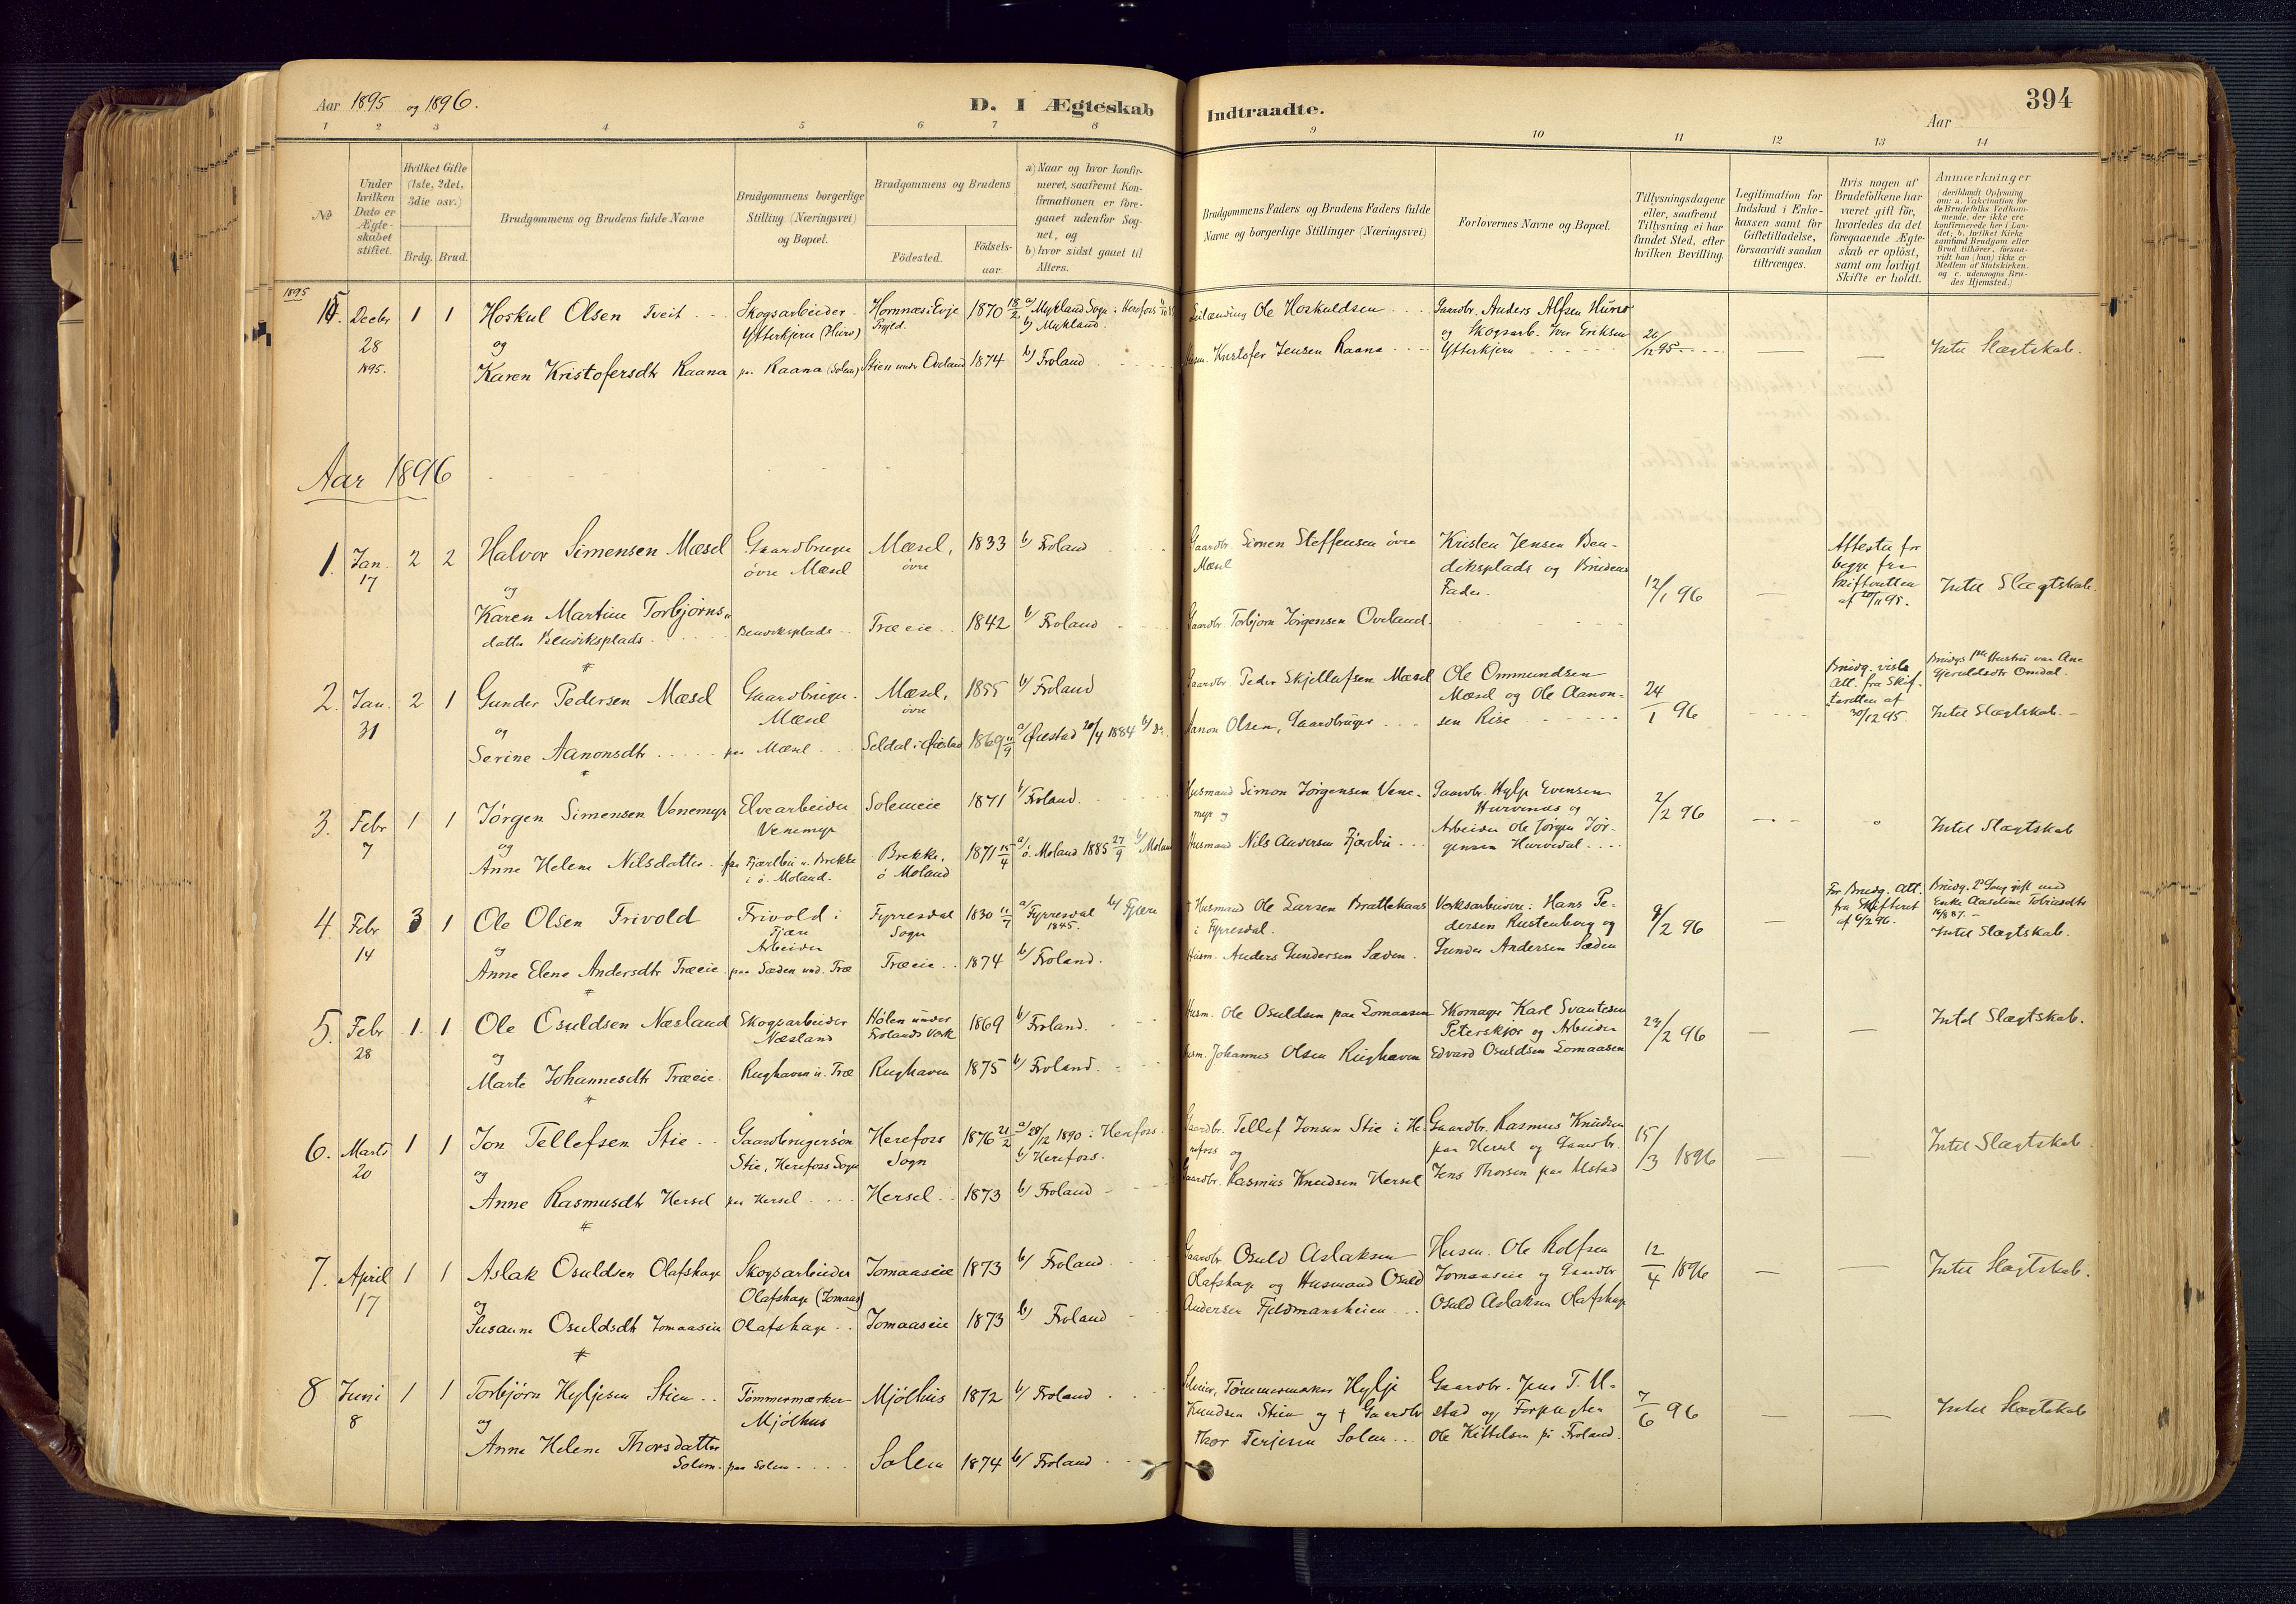 Aar 1895 og 1896.
D. I Ægteskab Indtraadte.
Aar
394
1 2 3 4 5 6 7 8 9 10 11 12 13 14
No
Under hvilken Dato er Ægteskabet stiftet.
Hvilket Gifte (1ste, 2det, 3die osv.)
Brdg. Brud.
Brudgommens og Brudens fulde Navne
Brudgommens borgerlige Stilling (Næringsvei) og Bopæl.
Brudgommens og Brudens
Fødested.
Fødsels-aar.
a) Naar og hvor konfirmeret, saafremt Konfirmationen er foregaaet udenfor Sognet, og
b) hvor sidst gaaet til Alters.
Brudgommens Faders og Brudens Faders fulde Navne og borgerlige Stillinger (Næringsvei)
Forlovernes Navne og Bopæl.
Tillysningsdagene eller, saafremt Tillysning ei har fundet Sted, efter hvilken Bevilling.
Legitimation for Indskud i Enkekassen samt for Giftetilladelse, forsaavidt saadan tiltrænges.
Hvis nogen af Brudefolkene har været gift før, hvorledes da det foregaaende Ægteskab er opløst, samt om lovligt Skifte er holdt.
Anmærkninger
(deriblandt Oplysning om: a. Vakcination for de Brudefolks Vedkommende, der ikke ere konfirmerede her i Landet, b. hvilket Kirkesamfund Brudgom eller Brud tilhører, forsaavidt han (hun) ikke er Medlem af Statskirken, og c. udensogns Brudes Hjemsted.)
1895
15. Decbr 28 1895. 1 1 Hoskul Olsen Tveit
Skogsarbeider Ytterkjern (Hurv) Hornnæs i Evje 1870 18/2 a/ Mykland Sogn i Herefoss
b/ Mykland.
Ole Hoskuldsen
Gaardbr. Anders Alfsen Hurv
og Skogsarb. Iver Eriksen
Ytterkjern
21/12 95 — — Intet Slægtskab.
og
Karen Kristofersdtr Raana paa Raana (Solem) Stien under Oveland 1874 b/ Froland
Husm. Kristofer Jensen Raana
Aar 1896
1. Jan. 17 2 2 Halvor Simensen Mæsel
Gaardbruger øvre Mæsel Mæsel, øvre 1833 b/ Froland
Gaardbr. Simen Steffensen øvre Mæsel
Kristen Jensen Bendiksplads og Brudens Fader.
12/1 96 —
Attester for begge fra Skifteretten af 20/11 95.
Intet Slægtskab.
og
Karen Martine Torbjørnsdatter Bendiksplads
Bendiksplads Træeie 1842 b/ Froland
Gaardbr. Torbjørn Jørgensen Oveland.
2. Jan. 31 2 1 Gunder Pedersen Mæsel
Gaardbruger. Mæsel Mæsel, øvre 1855 b/ Froland
Gaardbr. Peder Skjellufsen Mæsel
Ole Ommundsen Mæsel og Ole Aanonsen Rise
24/1 96
Brudg. viste Att. fra Skifteretten af 30/12 95.
Brudgs 1ste Hustru var Ane Gjeruldsdtr Omdal.
Intet Slægtskab.
og
Serine Aanonsdtr paa Mæsel Seldal i Øiestad 1869 11/9 a/ Øiestad 20/4 1884 b/ Do.
Aanon Olsen, Gaardbruger
3. Febr 7 1 1 Jørgen Simensen Venemyr
Elvearbeider Venemyr Solemeie 1871 b/ Froland.
Husmand Simon Jørgensen Venemyr og
Gaardbr. Hylje Evensen Hurvenes og
Arbeider Ole Jørgen Jørgensen Hurvedal
2/2 96
Intet Slægtskab
og
Anne Helene Nilsdatter paa Fjærlbu u. Brekke i ø. Moland.
Brekke, ø Moland 1871 15/4 a/ ø. Moland 1885 27/9 b/ Moland
Husmand Nils Andersen Fjærbu
4. Febr 14 3 1 Ole Olsen Trivold
Trivold i Fjære Arbeider Fyrresdal Sogn 1830 11/7 a/ Fyrresdal 1845. b/ Fjære
† Husmand Ole Larsen Brattekaas i Fyrresdal.
Verksarbeidere: Hans Pedersen Rustenberg og
Gunder Andersen Sæden
9/2 96 —
For Brudg. Att. fra Skifteret af 6/2 96.
Brudg. 2den Gang gift med Enke Aaseline Tobiasdtr
Intet Slægtskab.
og
Anne Elene Andersdtr Træeie. paa Sæden und. Træ Træeie 1874 b/ Froland.
Husm. Anders Gundersen Sæden.
5. Febr 28 1. 1 Ole Osuldsen Næsland
Skogsarbeider Næsland Hølen under Frolands Verk 1869 b/ Froland.
Husm. Ole Osuldsen paa Lomaasen
Skomager Karl Svantesen Peterskjær og Arbeider
Edvard Osuldsen Lomaasen
23/2 96 — — Intet Slægtskab.
og
Marte Johannesdtr Træeie. Rughaven u. Træ Rughaven 1875 b/ Froland.
Husm. Johannes Olsen Rughaven
6. Marts 20 1 1 Jon Tellefsen Stie
Gaardbrugersøn Stie, Herefoss Sogn Herefoss Sogn 1876 21/2 a/ 28/12 1890 i Herefoss.
b/ Herefoss.
Gaardbr. Tellef Jonsen Stie i Herefoss og
Gaardbr. Rasmus Knudsen paa Hersel og Gaardbr.
Jens Thorsen paa Ustad
15/3 1896 — — Intet Slægtskab
og
Anne Rasmusdtr Hersel paa Hersel Hersel 1873 b/ Froland
Gaardbr. Rasmus Knudsen Hersel
7. April 17 1 1 Aslak Osuldsen Olafshage
Skogsarbeider Olafshage (Tomaas) Tomaaseie 1873 b/ Froland
Gaardbr. Osuld Aslaksen Olafshage og Husmand Osuld Andersen Fjeldmansheien
Husm. Ole Rolfsen Tomaaseie og Gaardbr
Osuld Aslaksen Olafshage
12/4 1896 — — Intet Slægtskab.
og
Susanne Osuldsdtr Tomaaseie Olafshage Tomaaseie 1873 b/ Froland
8 Juni 8 1 1 Torbjørn Hyljesen Stien
Tømmermærker Mjølhus Mjølhus 1872 b/ Froland
Selveier, Tømmermærker Hylje Knudsen Stien og † Gaardbr
Thor Terjesen Solem
Gaardbr. Jens T. Ustad og Forpagter
Ole Kittelsen på Froland.
7/6 96 — — Intet Slægtskab
og
Anne Helene Thorsdatter Solem. paa Solem Solem 1874 b/ Froland